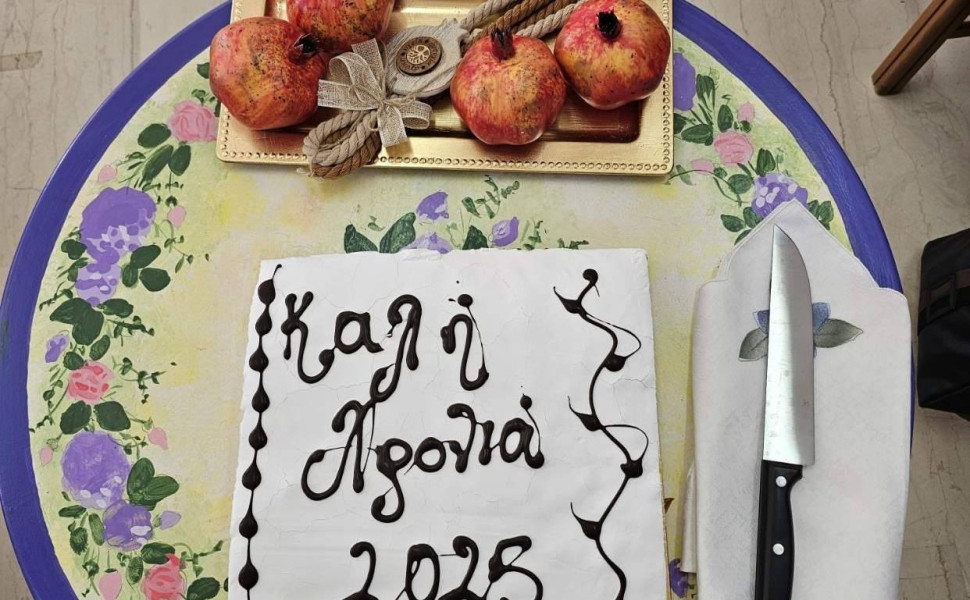 Καλή
Χρονιά
2025